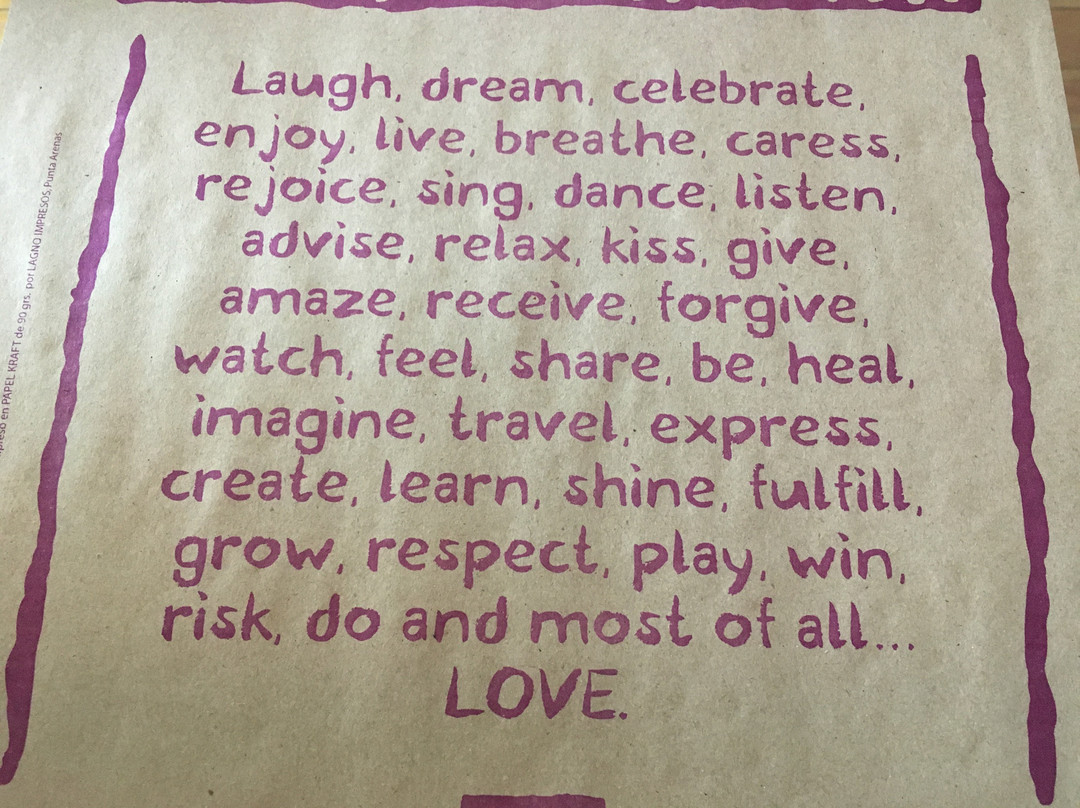 Laugh, dream, celebrate,
enjoy, live, breathe, caress,
rejoice, sing, dance, listen,
advise, relax, kiss, give,
amaze, receive, forgive,
watch, feel, share, be, heal,
imagine, travel, express,
create, learn, shine, fulfill,
grow, respect, play, win,
risk, do and most of all...
LOVE.
en PAPEL KRAFT de 90 grs. por LAGNO IMPRESOS, Punta Arenas